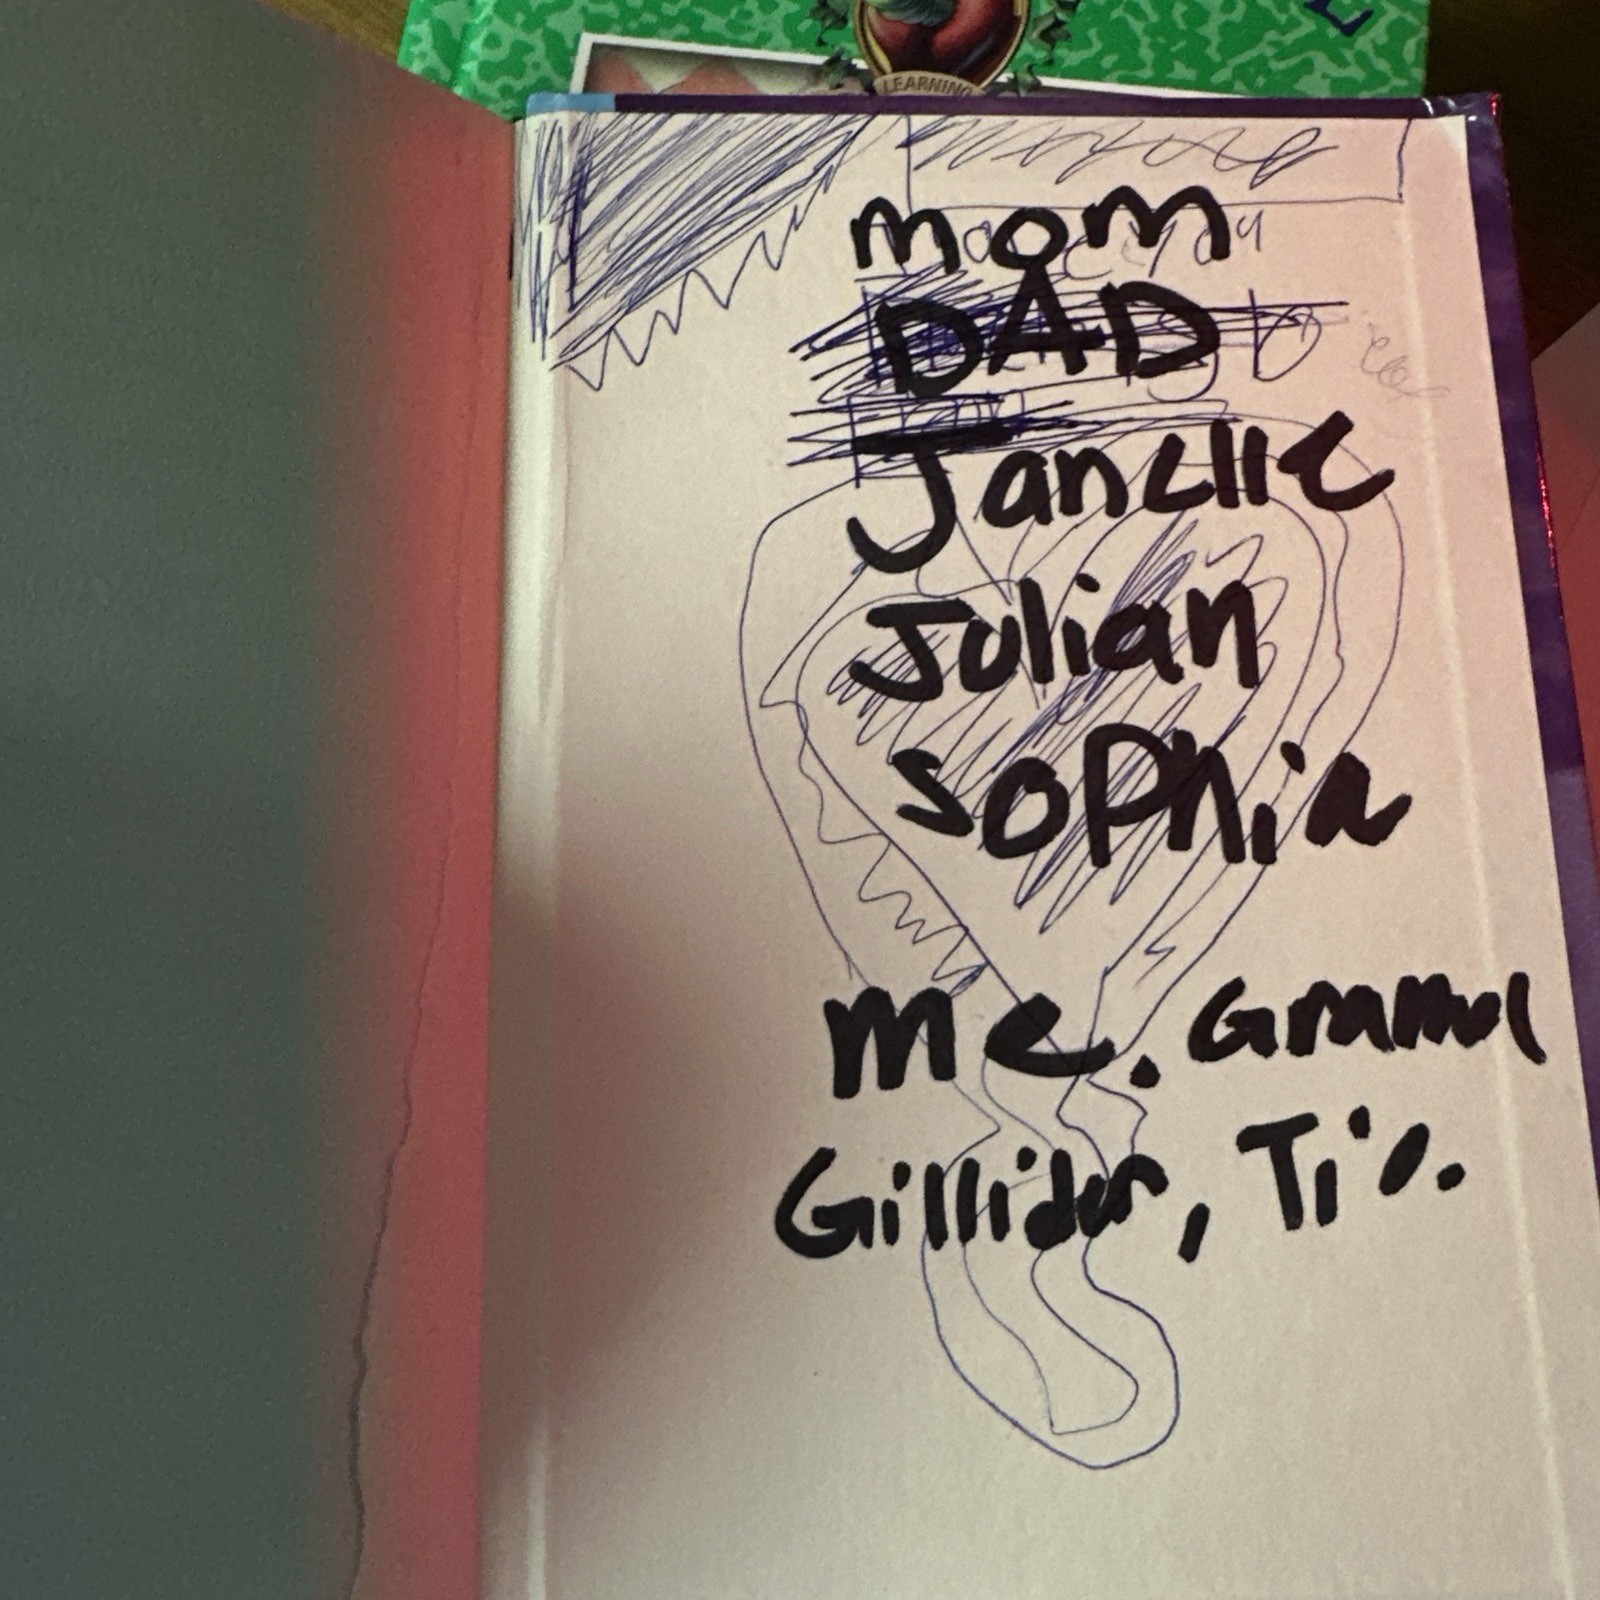 LEARNING
mom
DAD
Janelle
Julian
Sophia
me.
Gillider, Tio.